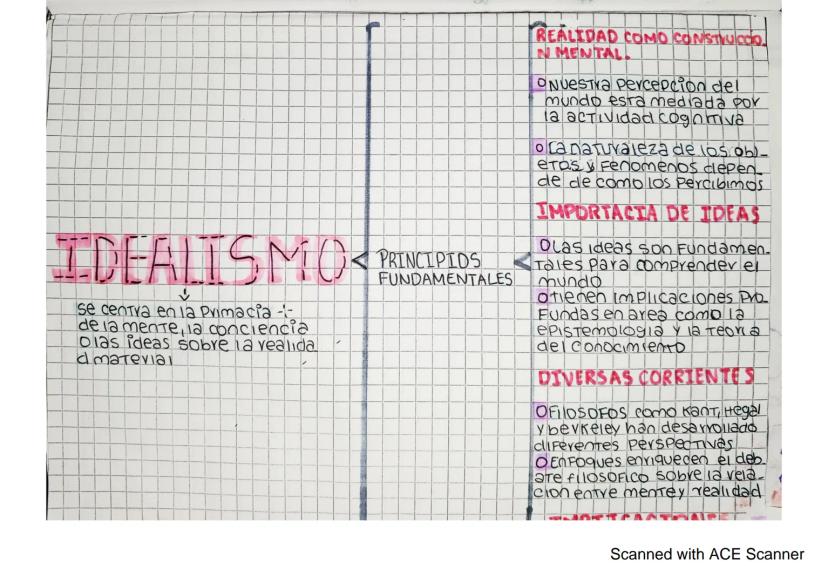 IDEALISMO
se centra en la Primacia
de la mente, la conciencia
o las ideas sobre la realida
d material
PRINCIPIOS
FUNDAMENTALES
REALIDAD COMO CONSTRUCCIO
N MENTAL.
Nuestra percepcion del
mundo esta mediada por
la actividad cognitiva
La naturaleza de los obj-
etos y Fenomenos depen-
de de como los percibimos
IMPORTACIA DE IDEAS
Las ideas son Fundamen-
tales para comprender el
mundo
tienen implicaciones Pro
Fundas en area como la
epistemologia y la teoria
del conocimiento
DIVERSAS CORRIENTES
Filosofos como Kant, Hegel
y berkeley han desarrollado
diferentes perspectivas
Enfoques enriquecen el deb-
ate filosofico sobre la rela-
cion entre mente y realidad
Scanned with ACE Scanner